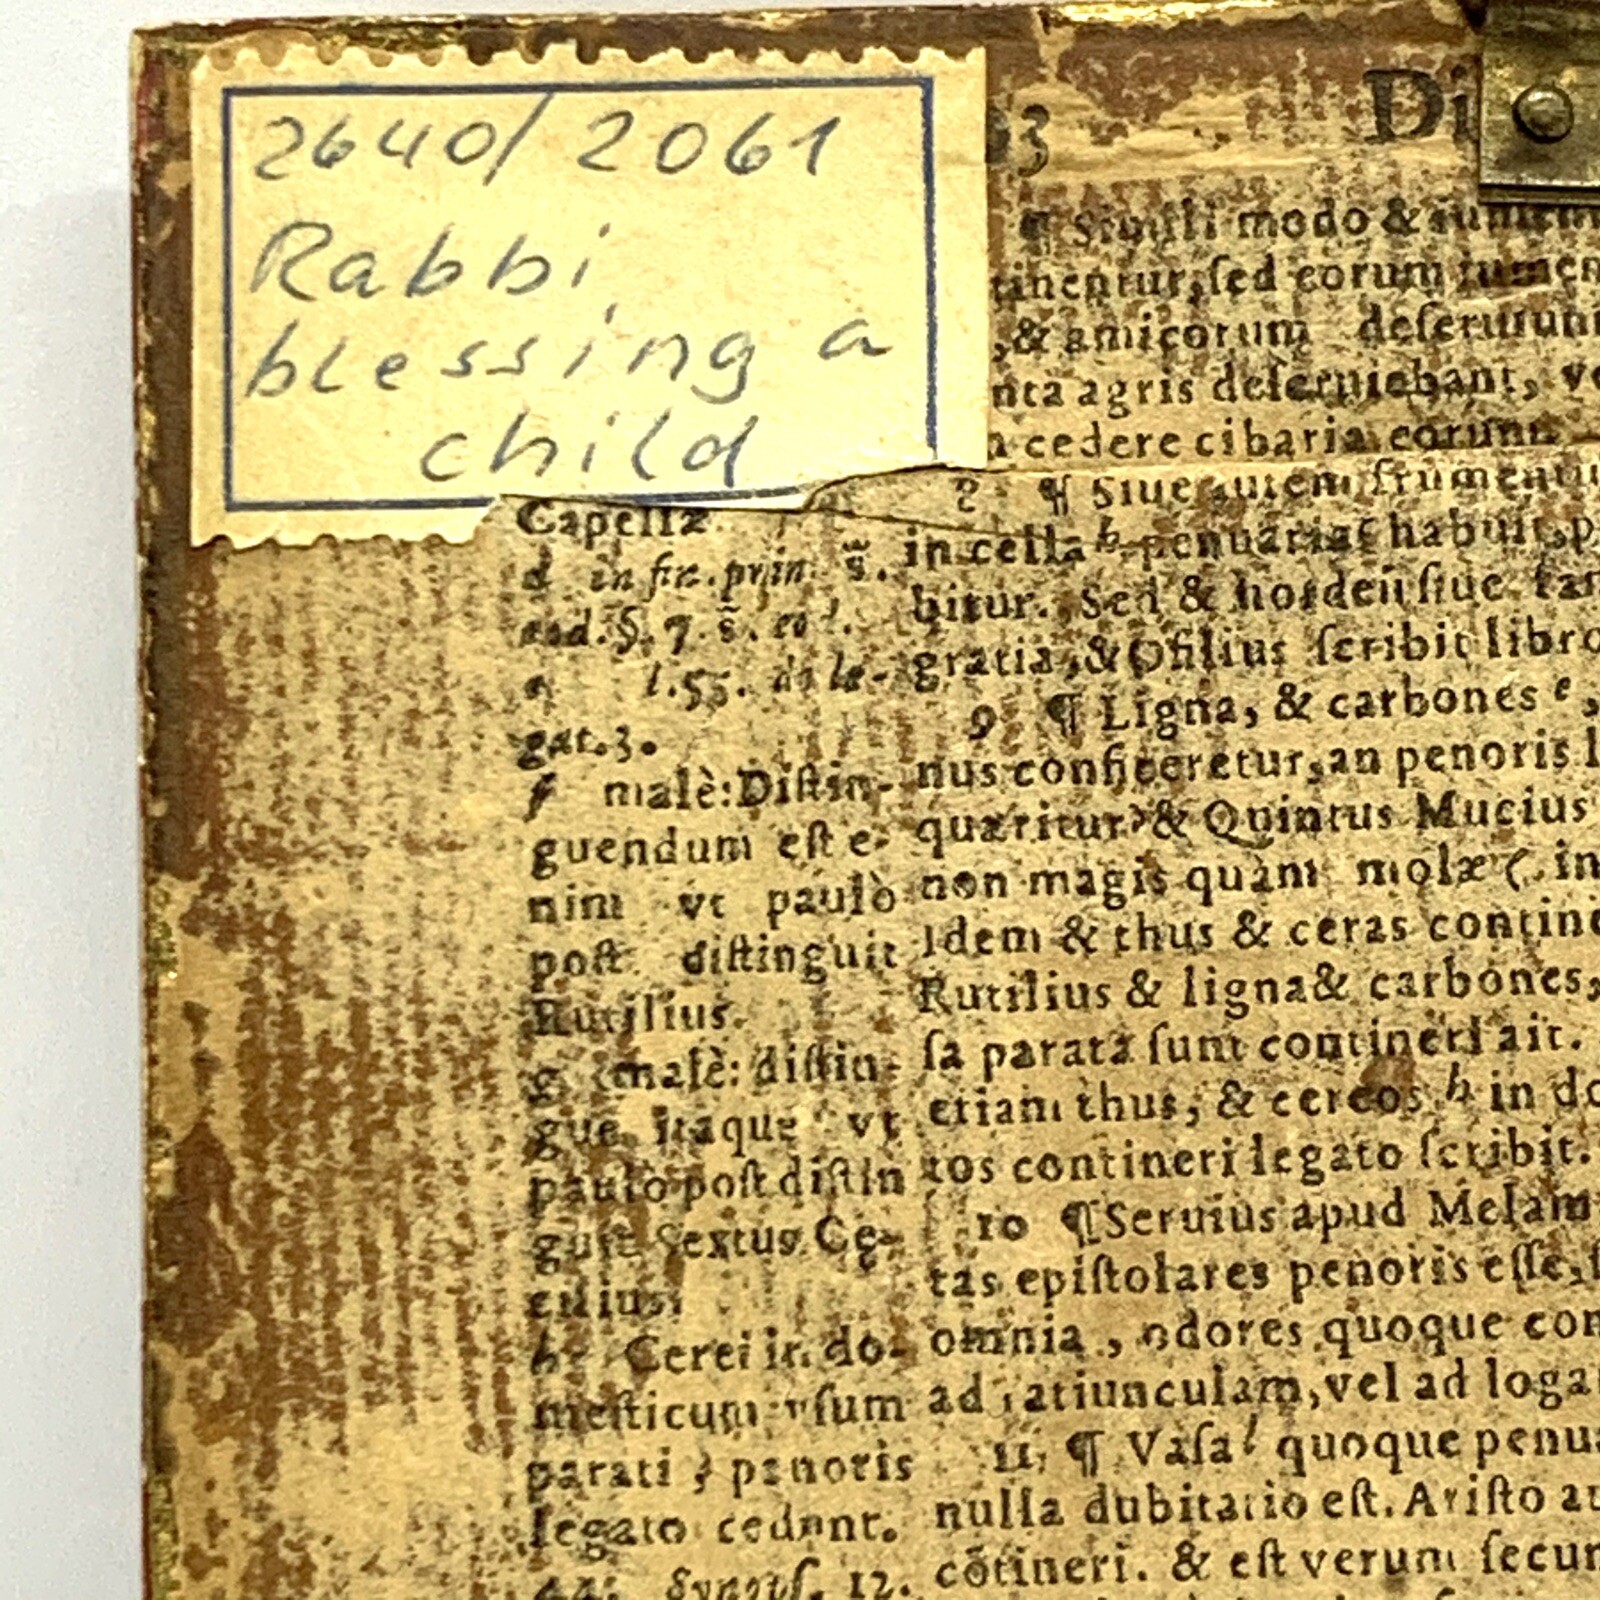 2640/2061
Rabbi
blessing a
child
3
Di
¶ Simili modo &
tinentur, ſed eorum iumen
, & amicorum deſeruiunt
nta agris deſeruiebant, ve
cedere cibaria eorum
¶ Siue autem frumentu
in cella h penuaria habuit, p
bitur. Sed & hordeū ſiue far
gratia, & Ofilius ſcribit libro
9 ¶ Ligna, & carbones e,
nus conficeretur, an penoris l
quæritur? & Quintus Mucius
non magis quàm molæ in
Idem & thus & ceras contine
Rutilius & ligna & carbones,
ſa parata ſunt contineri ait.
etiam thus, & cereos h in do
tos contineri legato ſcribit.
10 ¶ Seruius apud Melam
tas epiſtolares penoris eſſe, ſ
omnia, odores quoque con
ad ratiunculam, vel ad loga
11 ¶ Vaſa l quoque penua
nulla dubitatio eſt. Ariſto au
cōtineri. & eſt verum ſecun
Capellæ
d in fin. prin. s̃.
ead. §. 7. s̃. eod.
l. 55. de le-
gat. 3.
f malè: Diſtin-
guendum eſt e-
nim vt paulò
poſt diſtinguit
Rutilius.
g malè: diſtin-
gue itaque vt
paulò poſt diſtin
guit Sextus Cę-
cilius.
h Cerei in do-
meſticum vſum
parati, penoris
legato cedunt.
12.